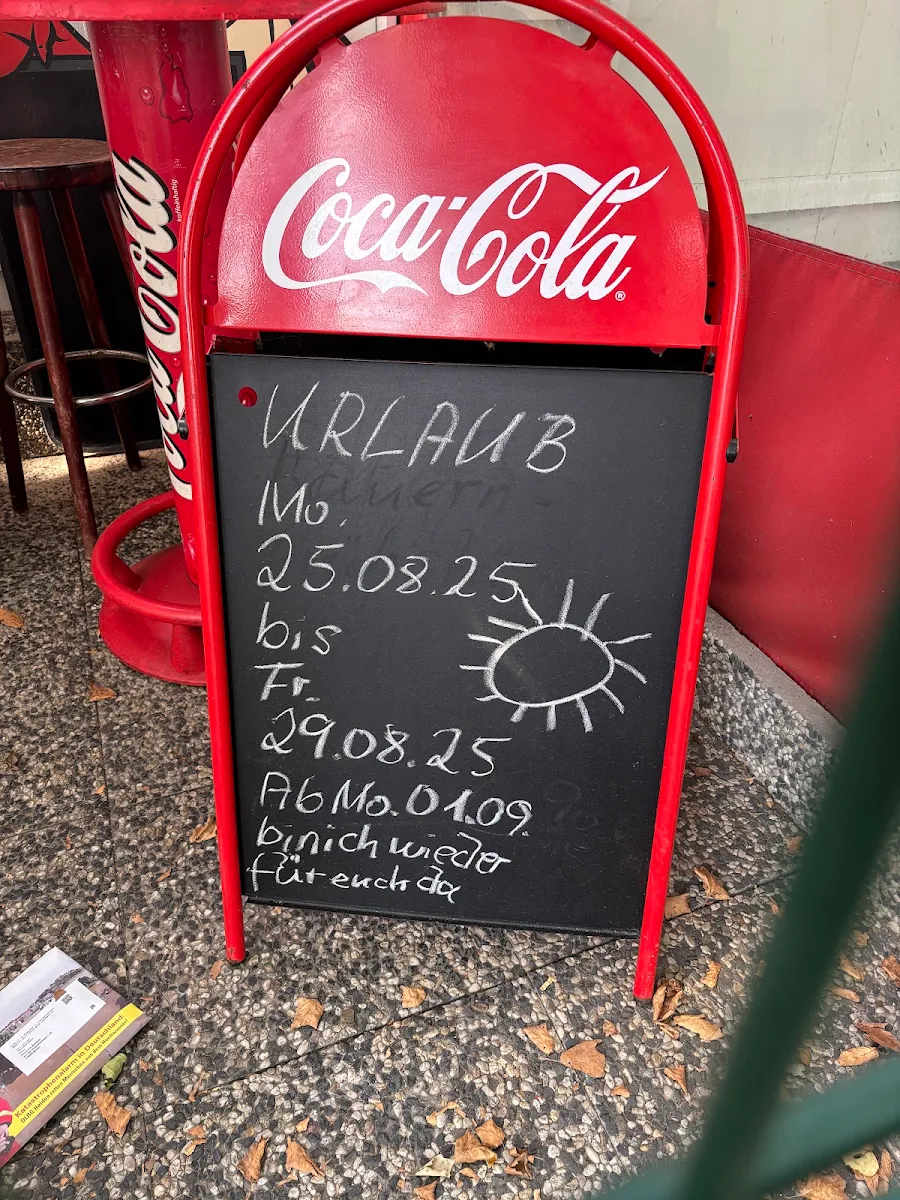 Coca-Cola
koffeinhaltig
Coca-Cola
URLAUB
Mo.
25.08.25
bis
Fr.
29.08.25
Ab Mo. 01.09.
bin ich wieder
für euch da
Katastrophenalarm in Deutschland.